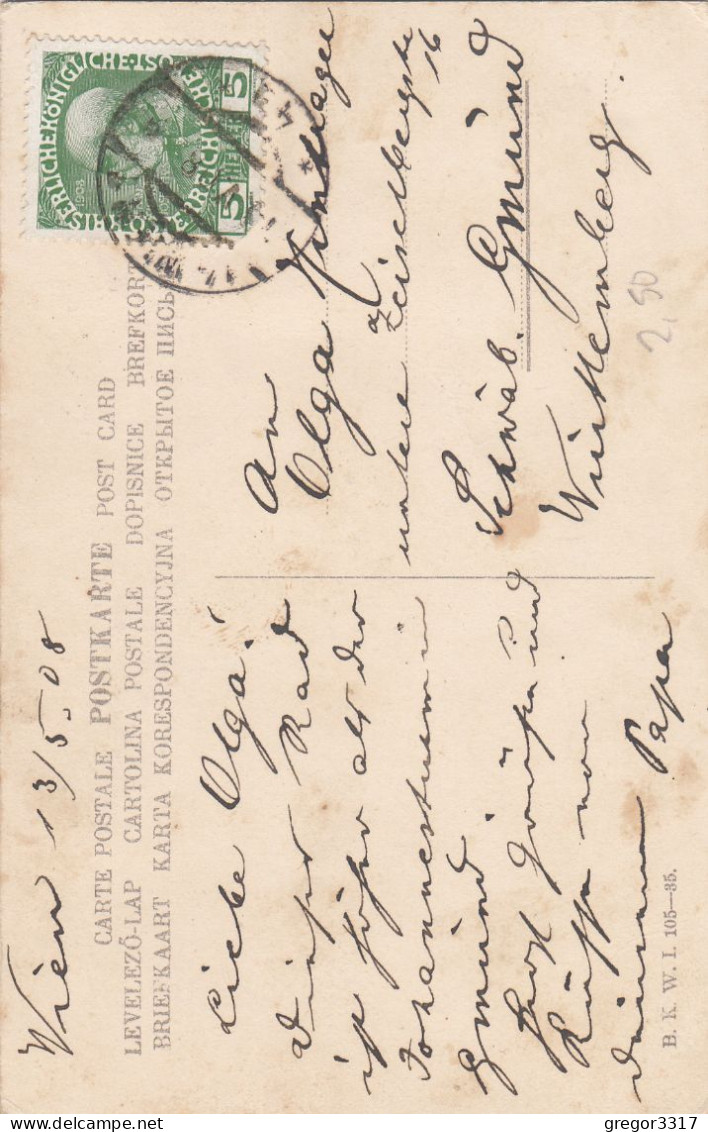 Wien 13/5. 08
CARTE POSTALE POSTKARTE POST CARD
LEVELEZŐ-LAP CARTOLINA POSTALE DOPISNICE BREFKORT
BRIEFKAART KARTA KORESPONDENCYJNA ОТКРЫТОЕ ПИСЬ
Liebe Olga!
Dieses Rad
ist höher als der
Johannesturm in
Gmünd
Herzl. Grüße und
Küsse von
deinem Papa
B. K. W. I. 105-35.
KAISERLICHE KÖNIGLICHE ÖSTERREICHISCHE POST
5 HELLER 5
1908
An
Olga
untere Zeiselbergstr
16
Schwäb. Gmünd
Württemberg.
2,50
gregor3317